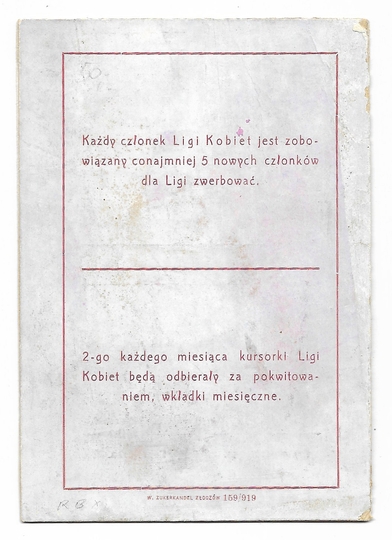 50.
Każdy członek Ligi Kobiet jest zobo-
wiązany conajmniej 5 nowych członków
dla Ligi zwerbować.
2-go każdego miesiąca kursorki Ligi
Kobiet będą odbierały za pokwitowa-
niem, wkładki miesięczne.
W. ZUKERKANDEL ZŁOCZÓW 159/919